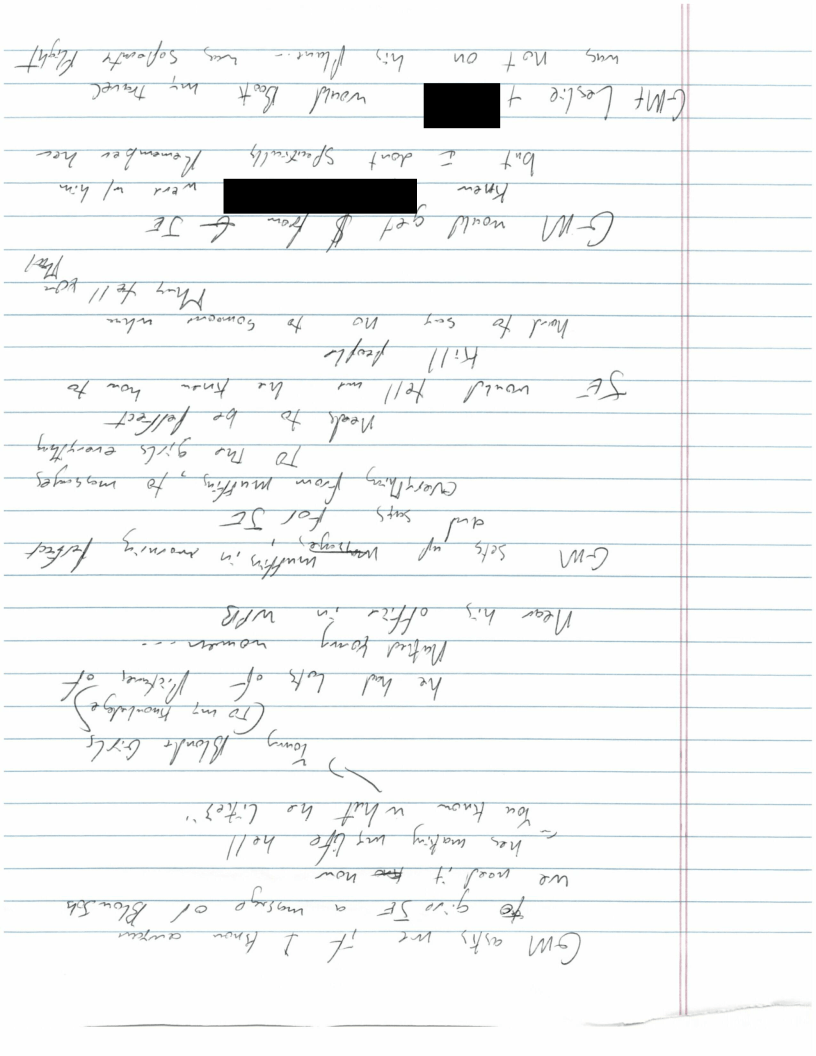 GM asks me if I know anyone
to give JE a massage or Blow Job
we need it now
hes making my life hell
"You know what he likes"
Young Blonde Girls
(To my knowledge)
he had lots of pictures of
Naked young women ----
Near his office in WPB
GM sets up massages, muffins in morning perfect
and says for JE
everything from muffins, to massages
To the girls everything
Needs to be perfect
JE would tell me he knew how to
Kill people
hard to say no to someone when
They tell you that
GM would get $ from JE
Knew were w/ him
but I dont specifically Remember her
GM + Leslie + would Book my travel
was not on his plane -- was separate flight